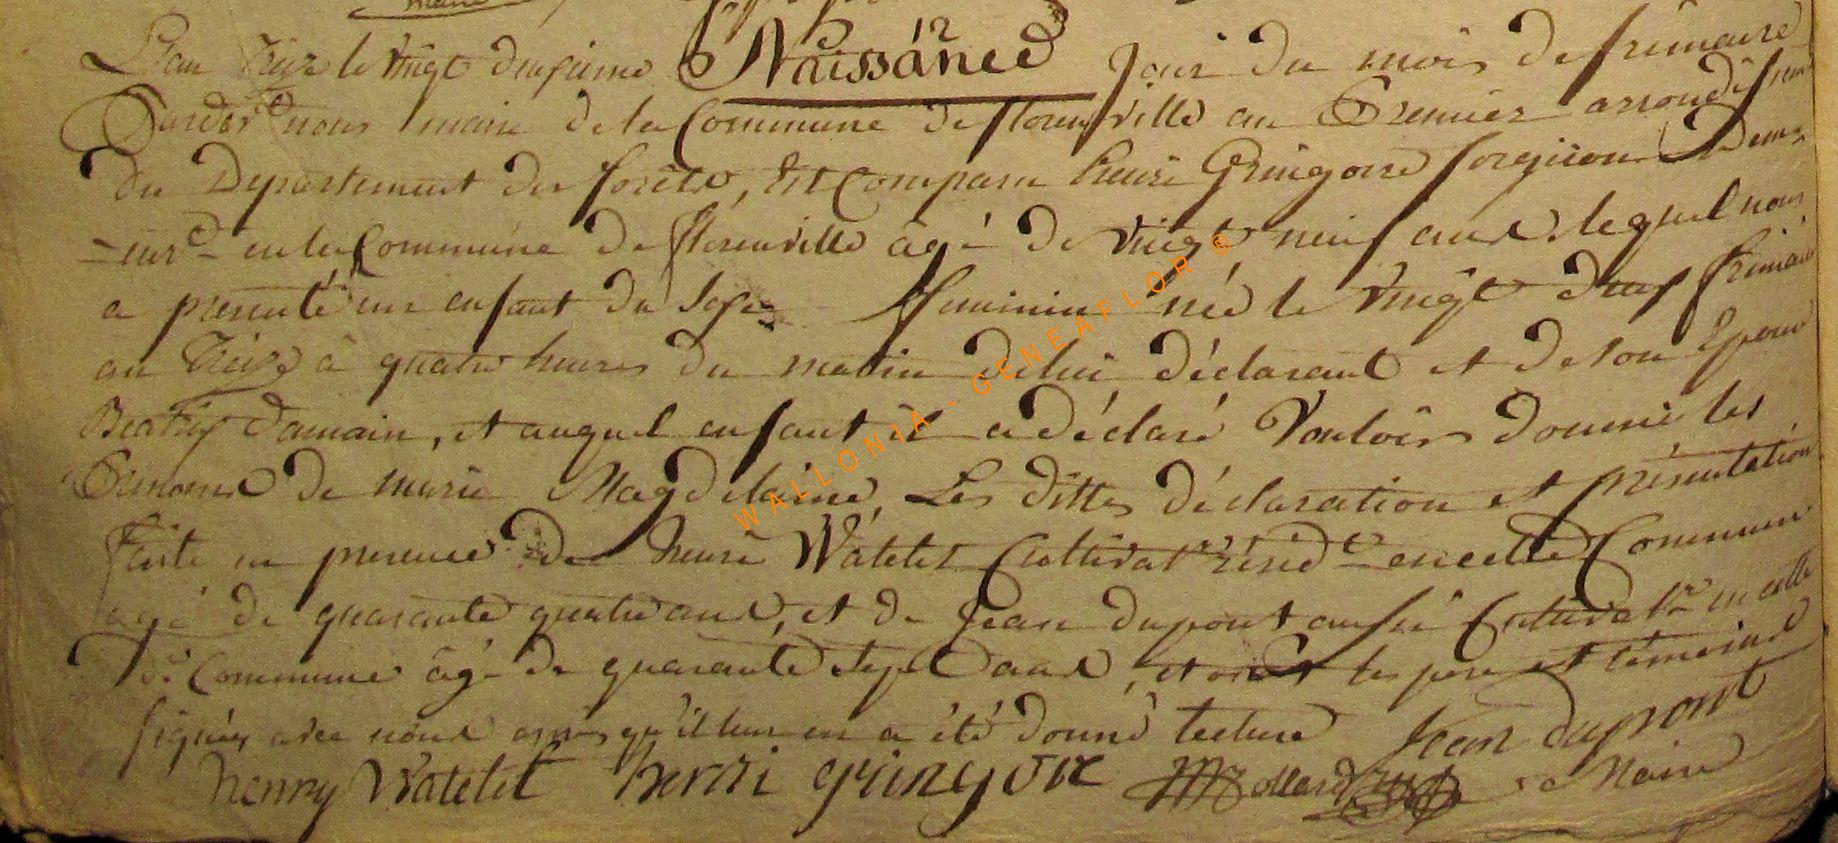 maire
Naissance
L'an treize le vingt deuxieme Jour du mois de frimaire
Pardevt nous maire de la Commune de florenville au Premier arrondissemt
du Departement des forêts, est Comparu henri Gringoire forgeron Demeu
-rant en la Commune de florenville âgé de vingt neuf ans, lequel nous
a presenté un enfant du sexe feminin née le vingt deux frimaire
an treize à quatre heures du matin de lui déclarant et de son Epouse
Beatrix Damain, et auquel enfant il a déclaré Vouloir donner les
Prenoms de marie Magdelaine, Les dittes déclaration et présentation
faite en presence de henri Watelet Cultivatr résidt en cette Commune
agé de quarante quatre ans, et de Jean dupont aussi Cultivatr en cette
de Commune âgé de quarante sept ans, et ont les pere et témoins
signés avec nous après qu'il leur en a été donné lecture Jean dupont
henry Watelet henri gringoire Maire
WALLONIA - GENEAFLOR ©